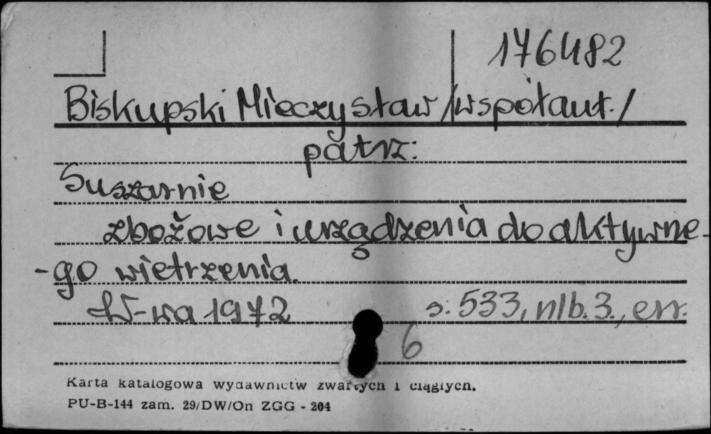 176482
Biskupski Mieczysław /współaut./
patrz:
Suszarnie
zbożowe i urządzenia do aktywne-
-go wietrzenia.
W-wa 1972 s. 533, nlb. 3., err.
6
Karta katalogowa wydawnictw zwartych i ciągłych.
PU-B-144 zam. 29/DW/On ZGG - 204